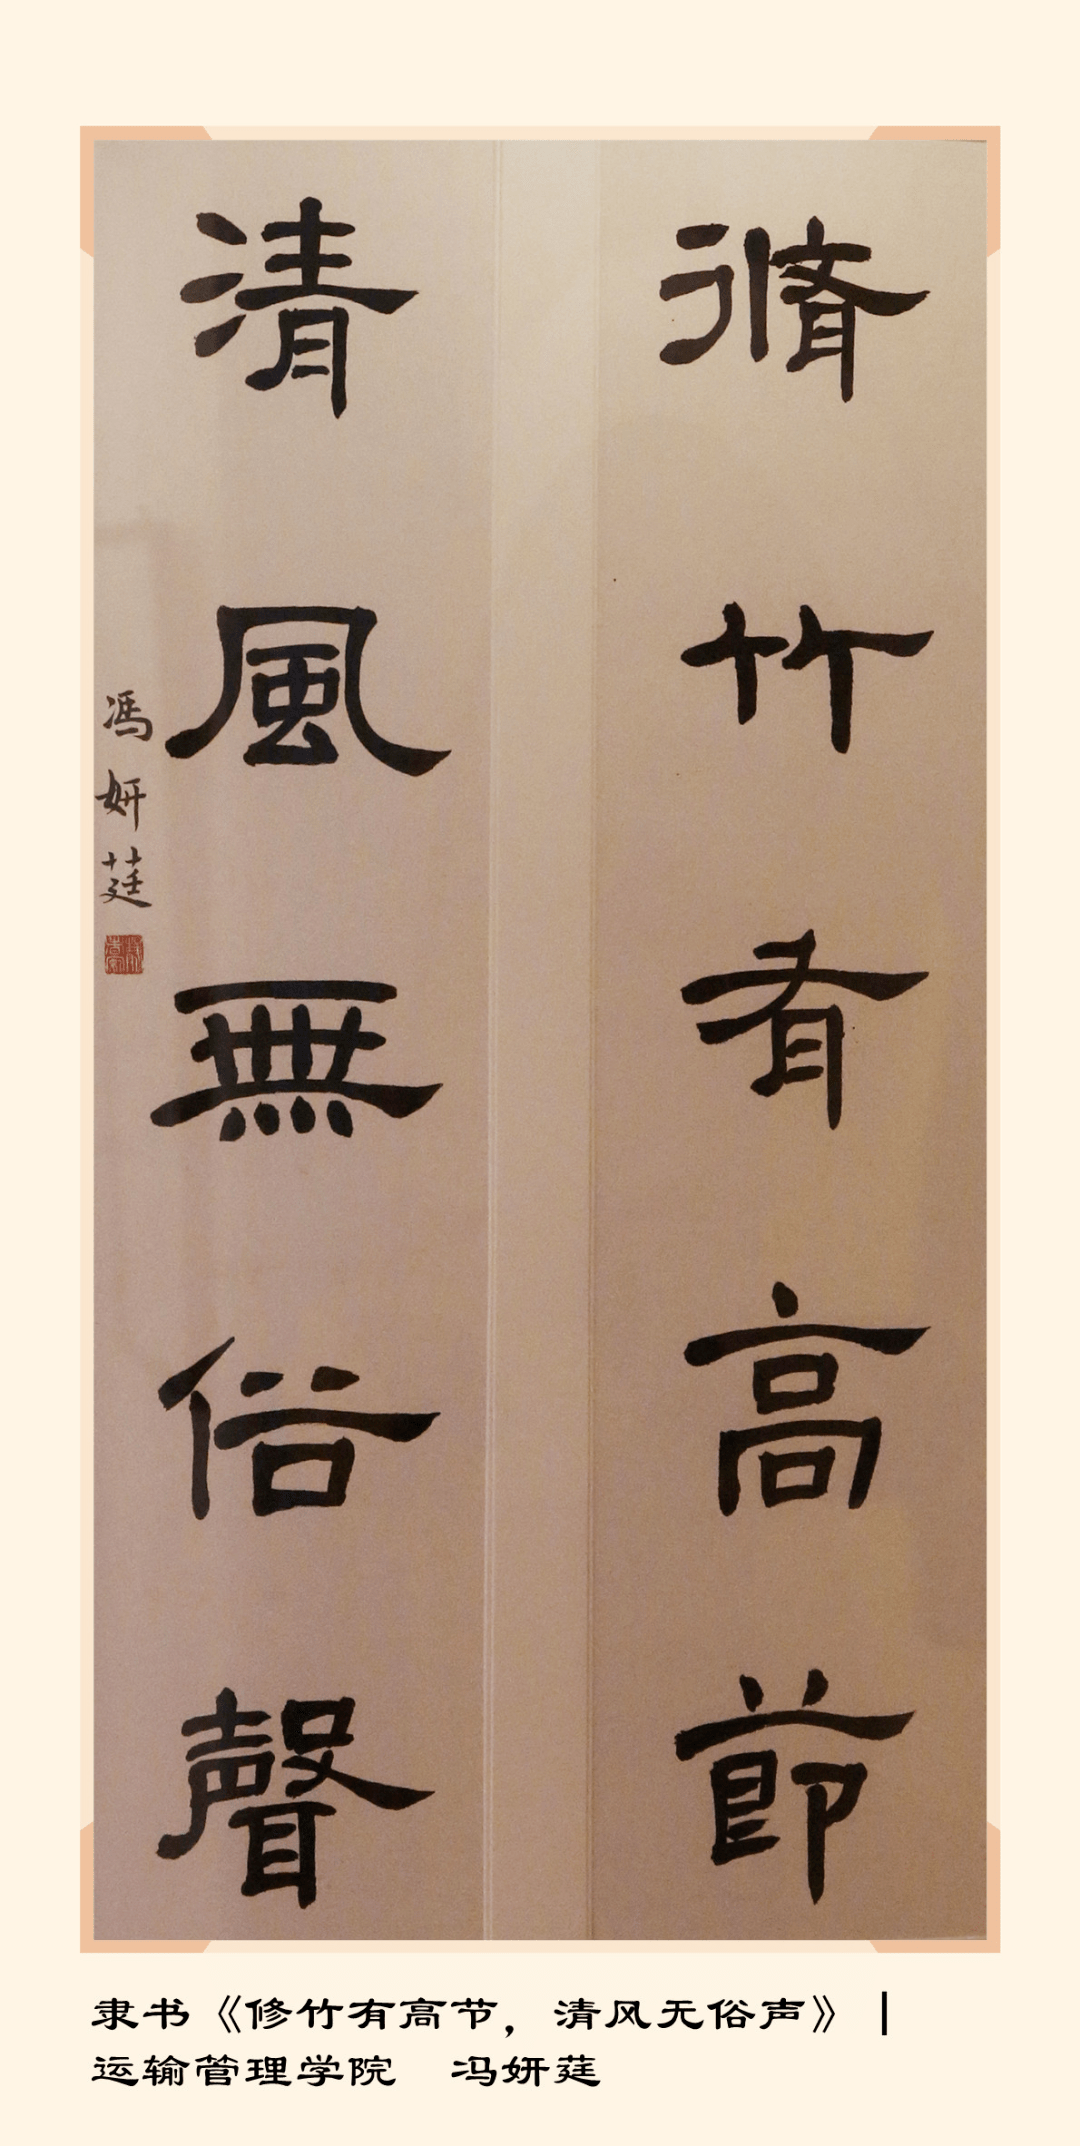 脩竹有高節
清風無俗聲
冯妍莛
隶书《修竹有高节，清风无俗声》｜
运输管理学院　冯妍莛